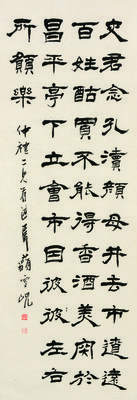 史君念孔瀆顏母井去市遼遠
百姓酤買不能得香酒美肉於
昌平亭下立會市因彼左右
所願樂
仲禮二兄有道正